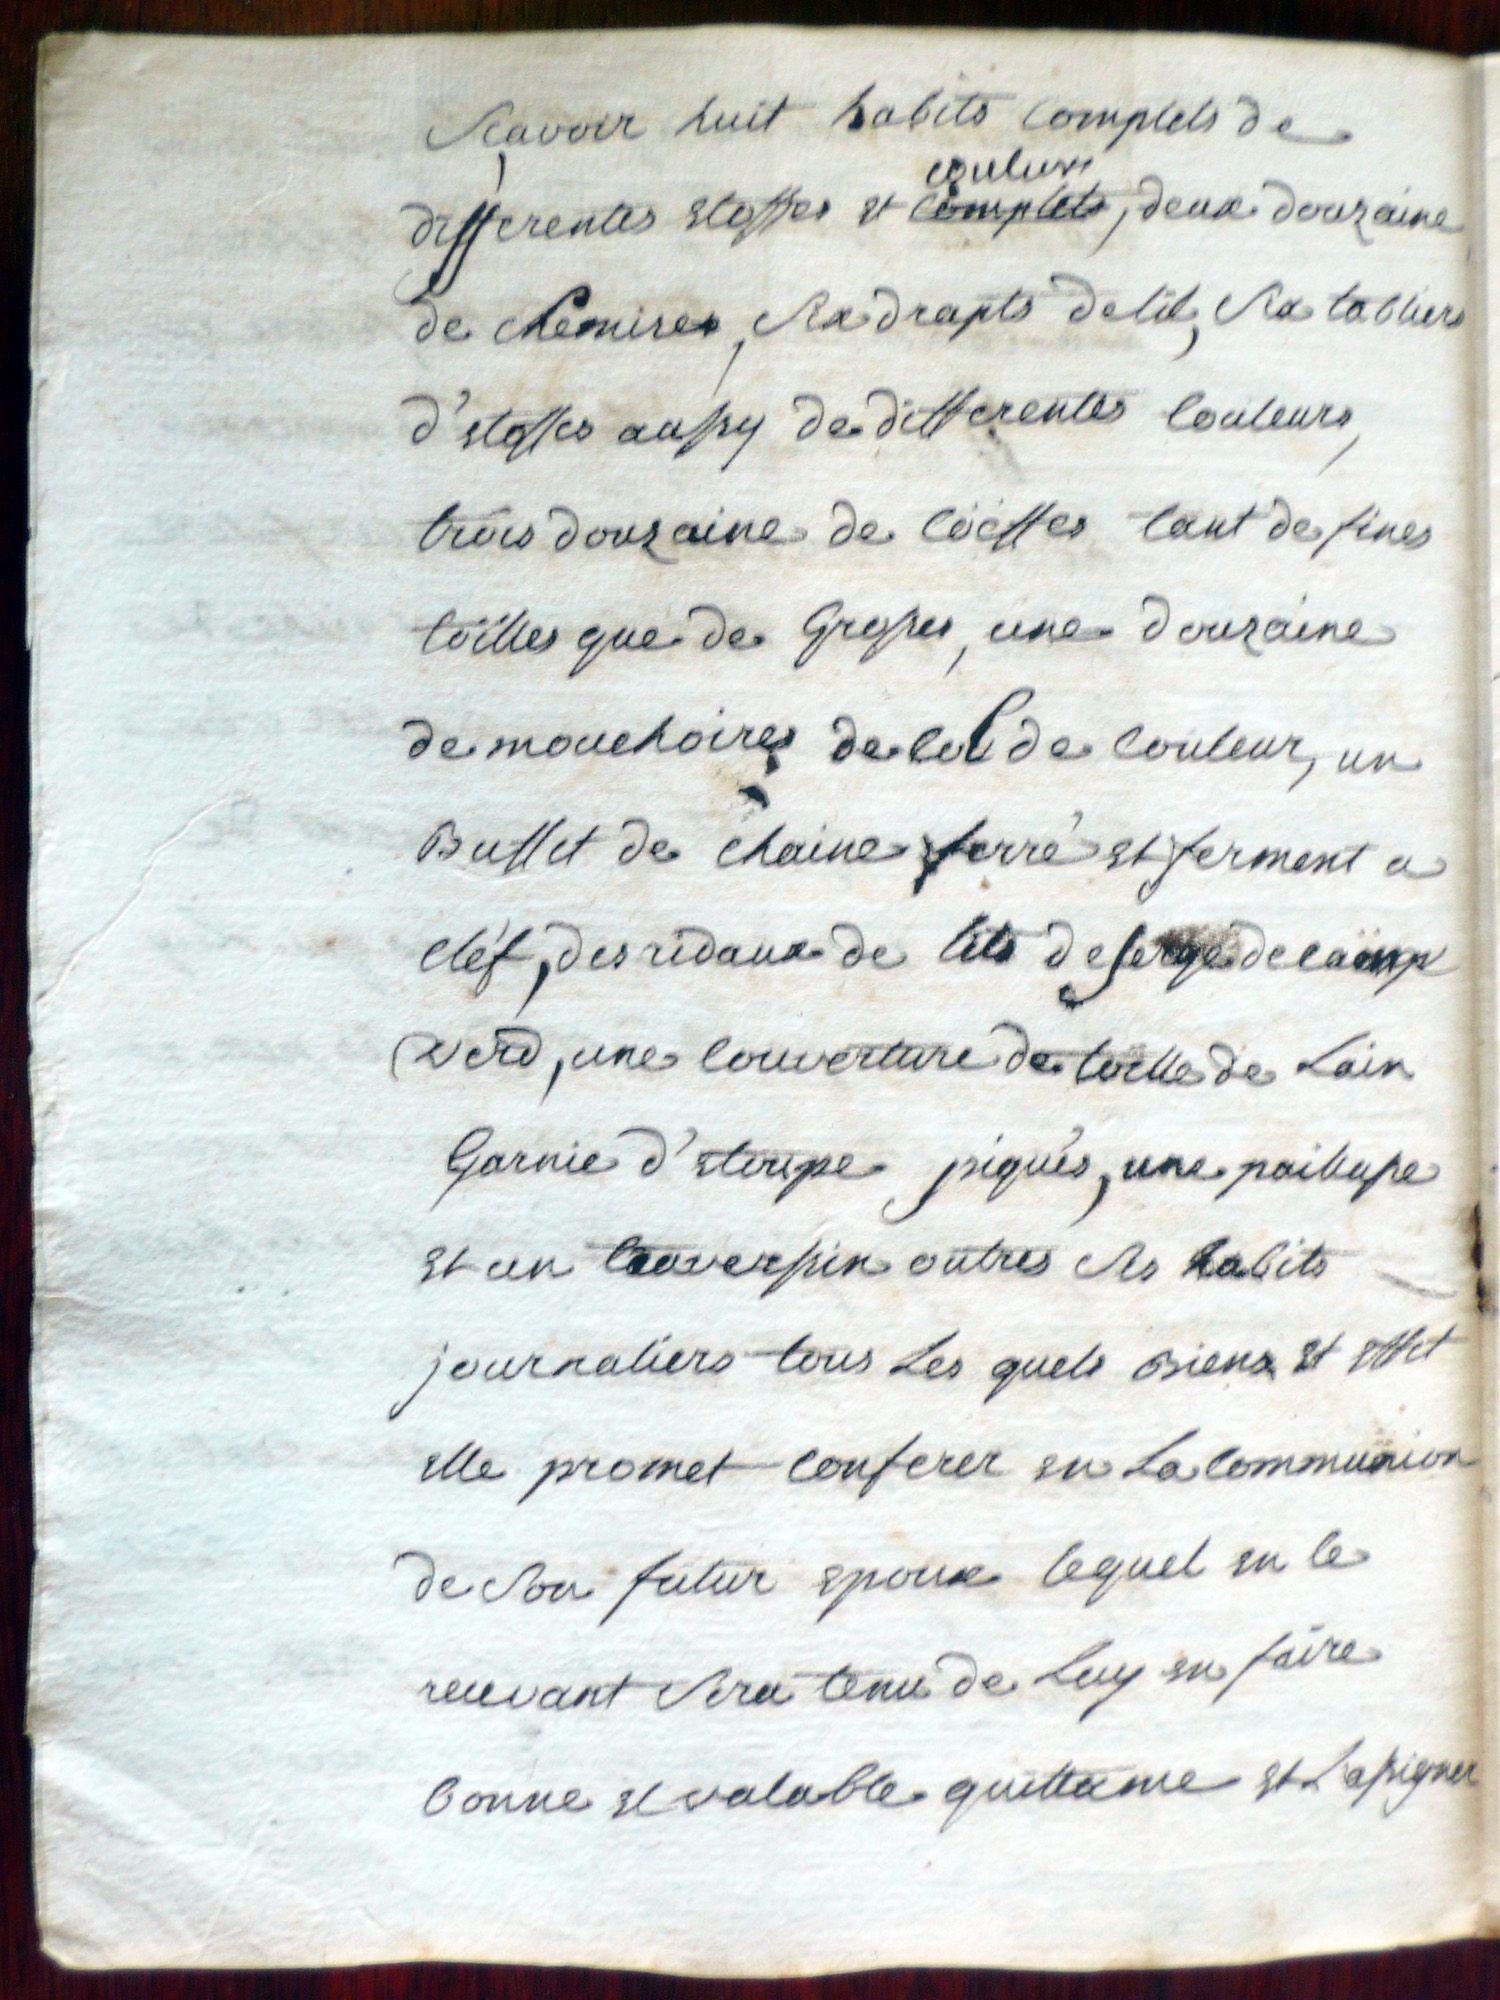 Sçavoir huit habits complets de
couleurs
differentes etoffes et complets, deux douzaine
de chemises, six drapts de lit, six tabliers
d'etoffes aussy de differentes couleurs,
trois douzaine de cöeffes tant de fines
toilles que de Grosses, une douzaine
de mouchoires de col de couleur, un
Buffet de chaine ferré et ferment a
cléf, des ridaux de lits de serge de
verd, une couverture de toille de Lain
Garnie d'etoupe piqués, une paillasse
et un traverssin outres ses habits
journaliers tous Les quels Biens et effet
elle promet conferer en La communion
de son futur epoux lequel en le
recevant sera tenu de Luy en faire
bonne et valable quittance et L'assigner